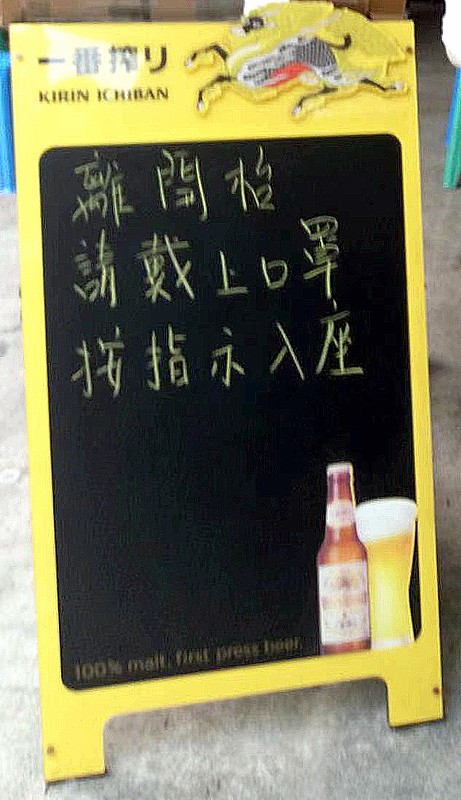 一番搾り
KIRIN ICHIBAN
離開枱
請戴上口罩
按指示入座
100% malt, first press beer.